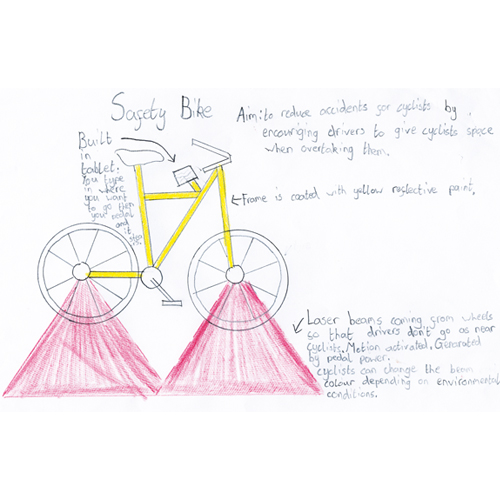 Safety Bike
Aim: to reduce accidents for cyclists by
encouriging drivers to give cyclists space
when overtaking them.
Built
in
tablet.
You type
in where
you want
to go then
you pedal
and
it
Frame is coated with yellow reflective paint.
Laser beams coming from wheels
so that drivers don't go as near
cyclists. Motion activated. Generated
by pedal power.
cyclists can change the beam
colour depending on environmental
conditions.